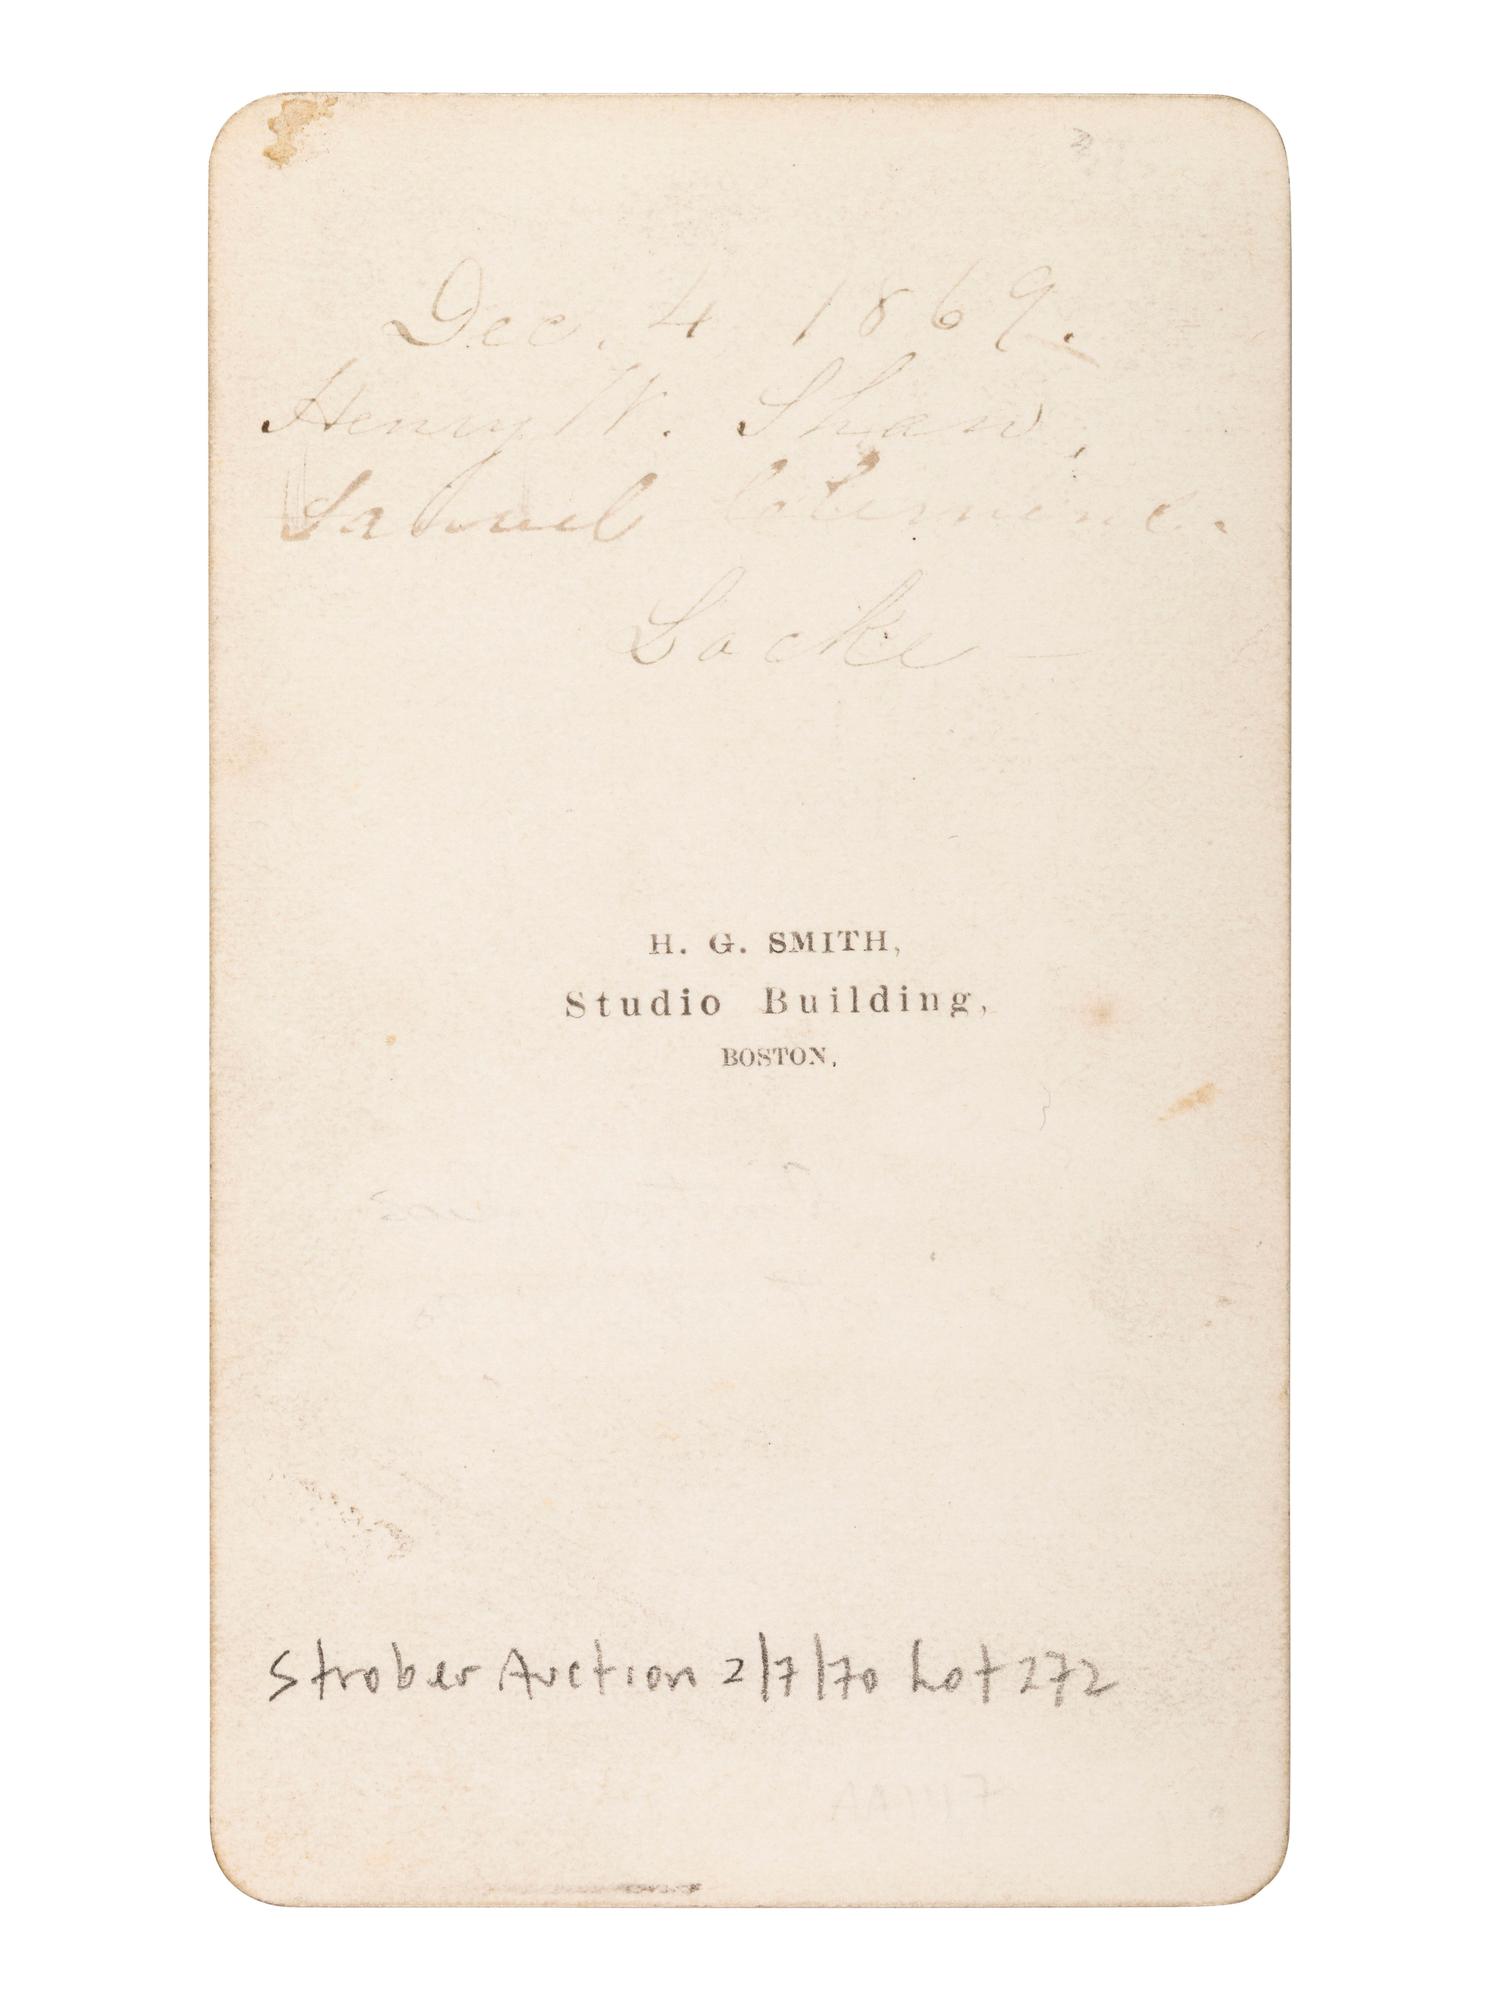 Dec. 4 1869.
Henry W. Shaw,
Samuel
Locke —
H. G. SMITH,
Studio Building,
BOSTON.
Strober Auction 2/7/70 Lot 272